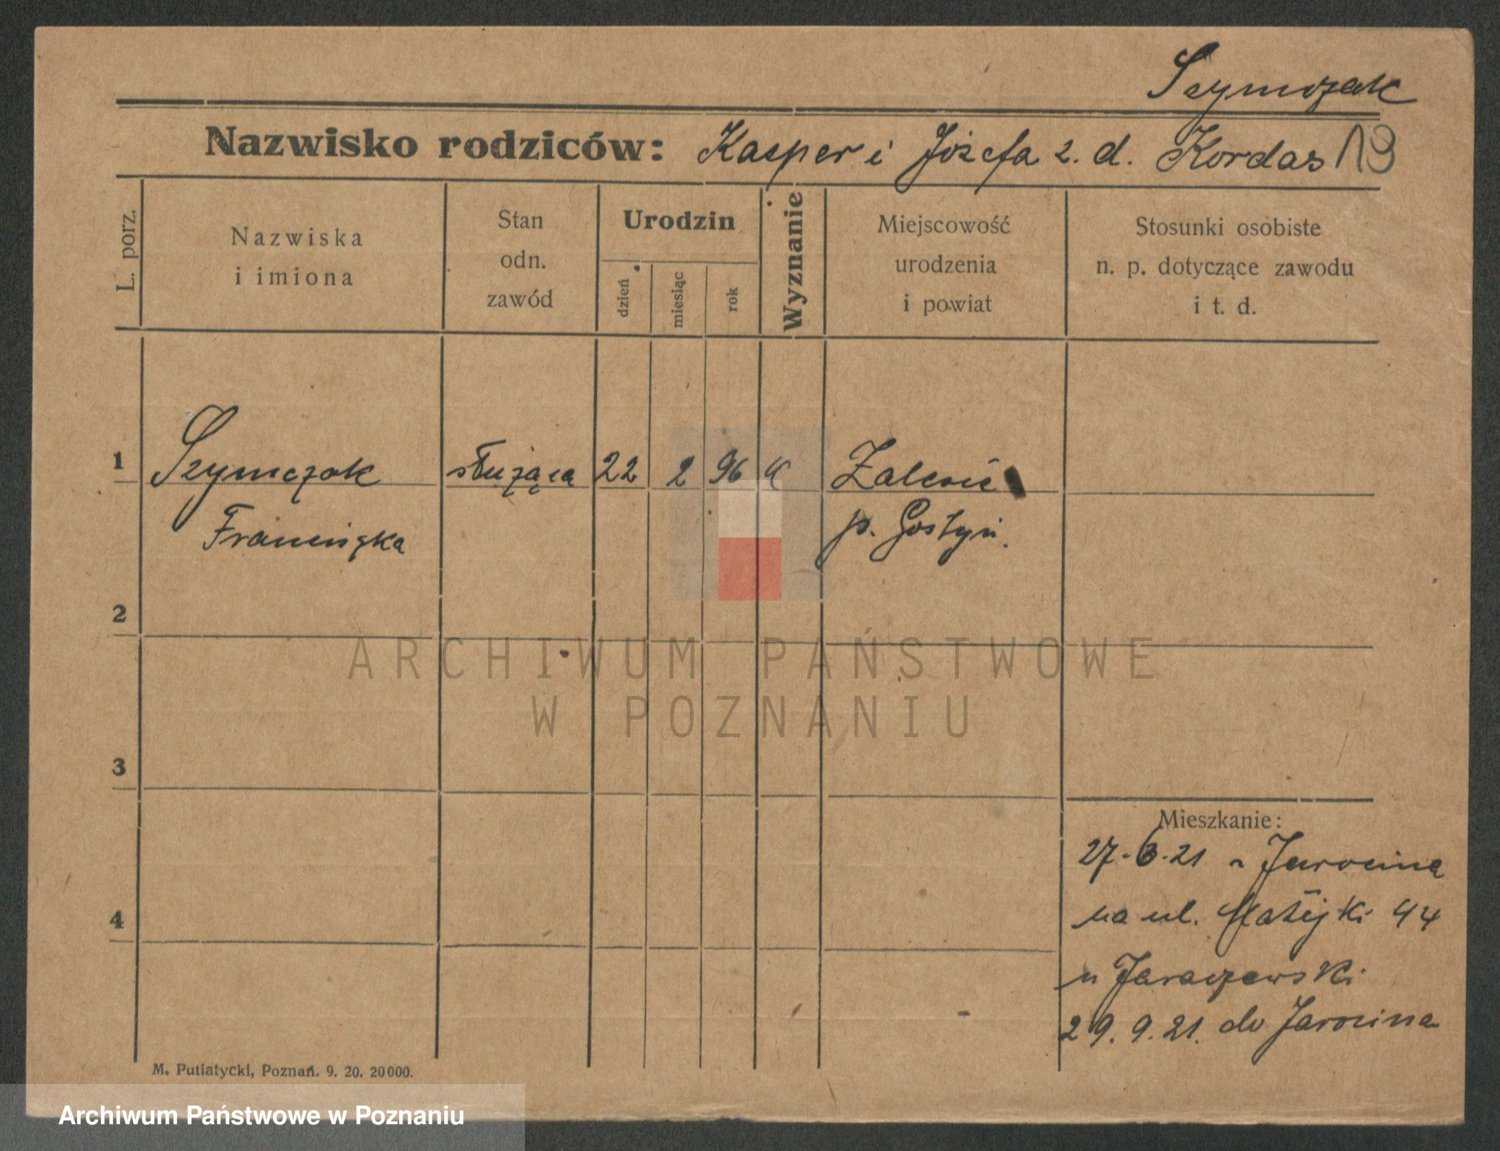 Szymczak
Nazwisko rodziców: Kasper i Józefa z. d. Kordas 19
L. porz.
Nazwiska
i imiona
Stan
odn.
zawód
Urodzin
dzień
miesiąc
rok
Wyznanie
Miejscowość
urodzenia
i powiat
Stosunki osobiste
n. p. dotyczące zawodu
i t. d.
1 Szymczak służąca 22 2 96 K
Franciszka p. Gostyń.
2
3
4
Mieszkanie:
27. 6. 21 z Jarocina
na ul. Matejki 44
u Jaraczewski
29. 9. 21. do Jarocina
M. Putiatycki, Poznań. 9. 20. 20000.
ARCHIWUM PAŃSTWOWE
W POZNANIU
Archiwum Państwowe w Poznaniu